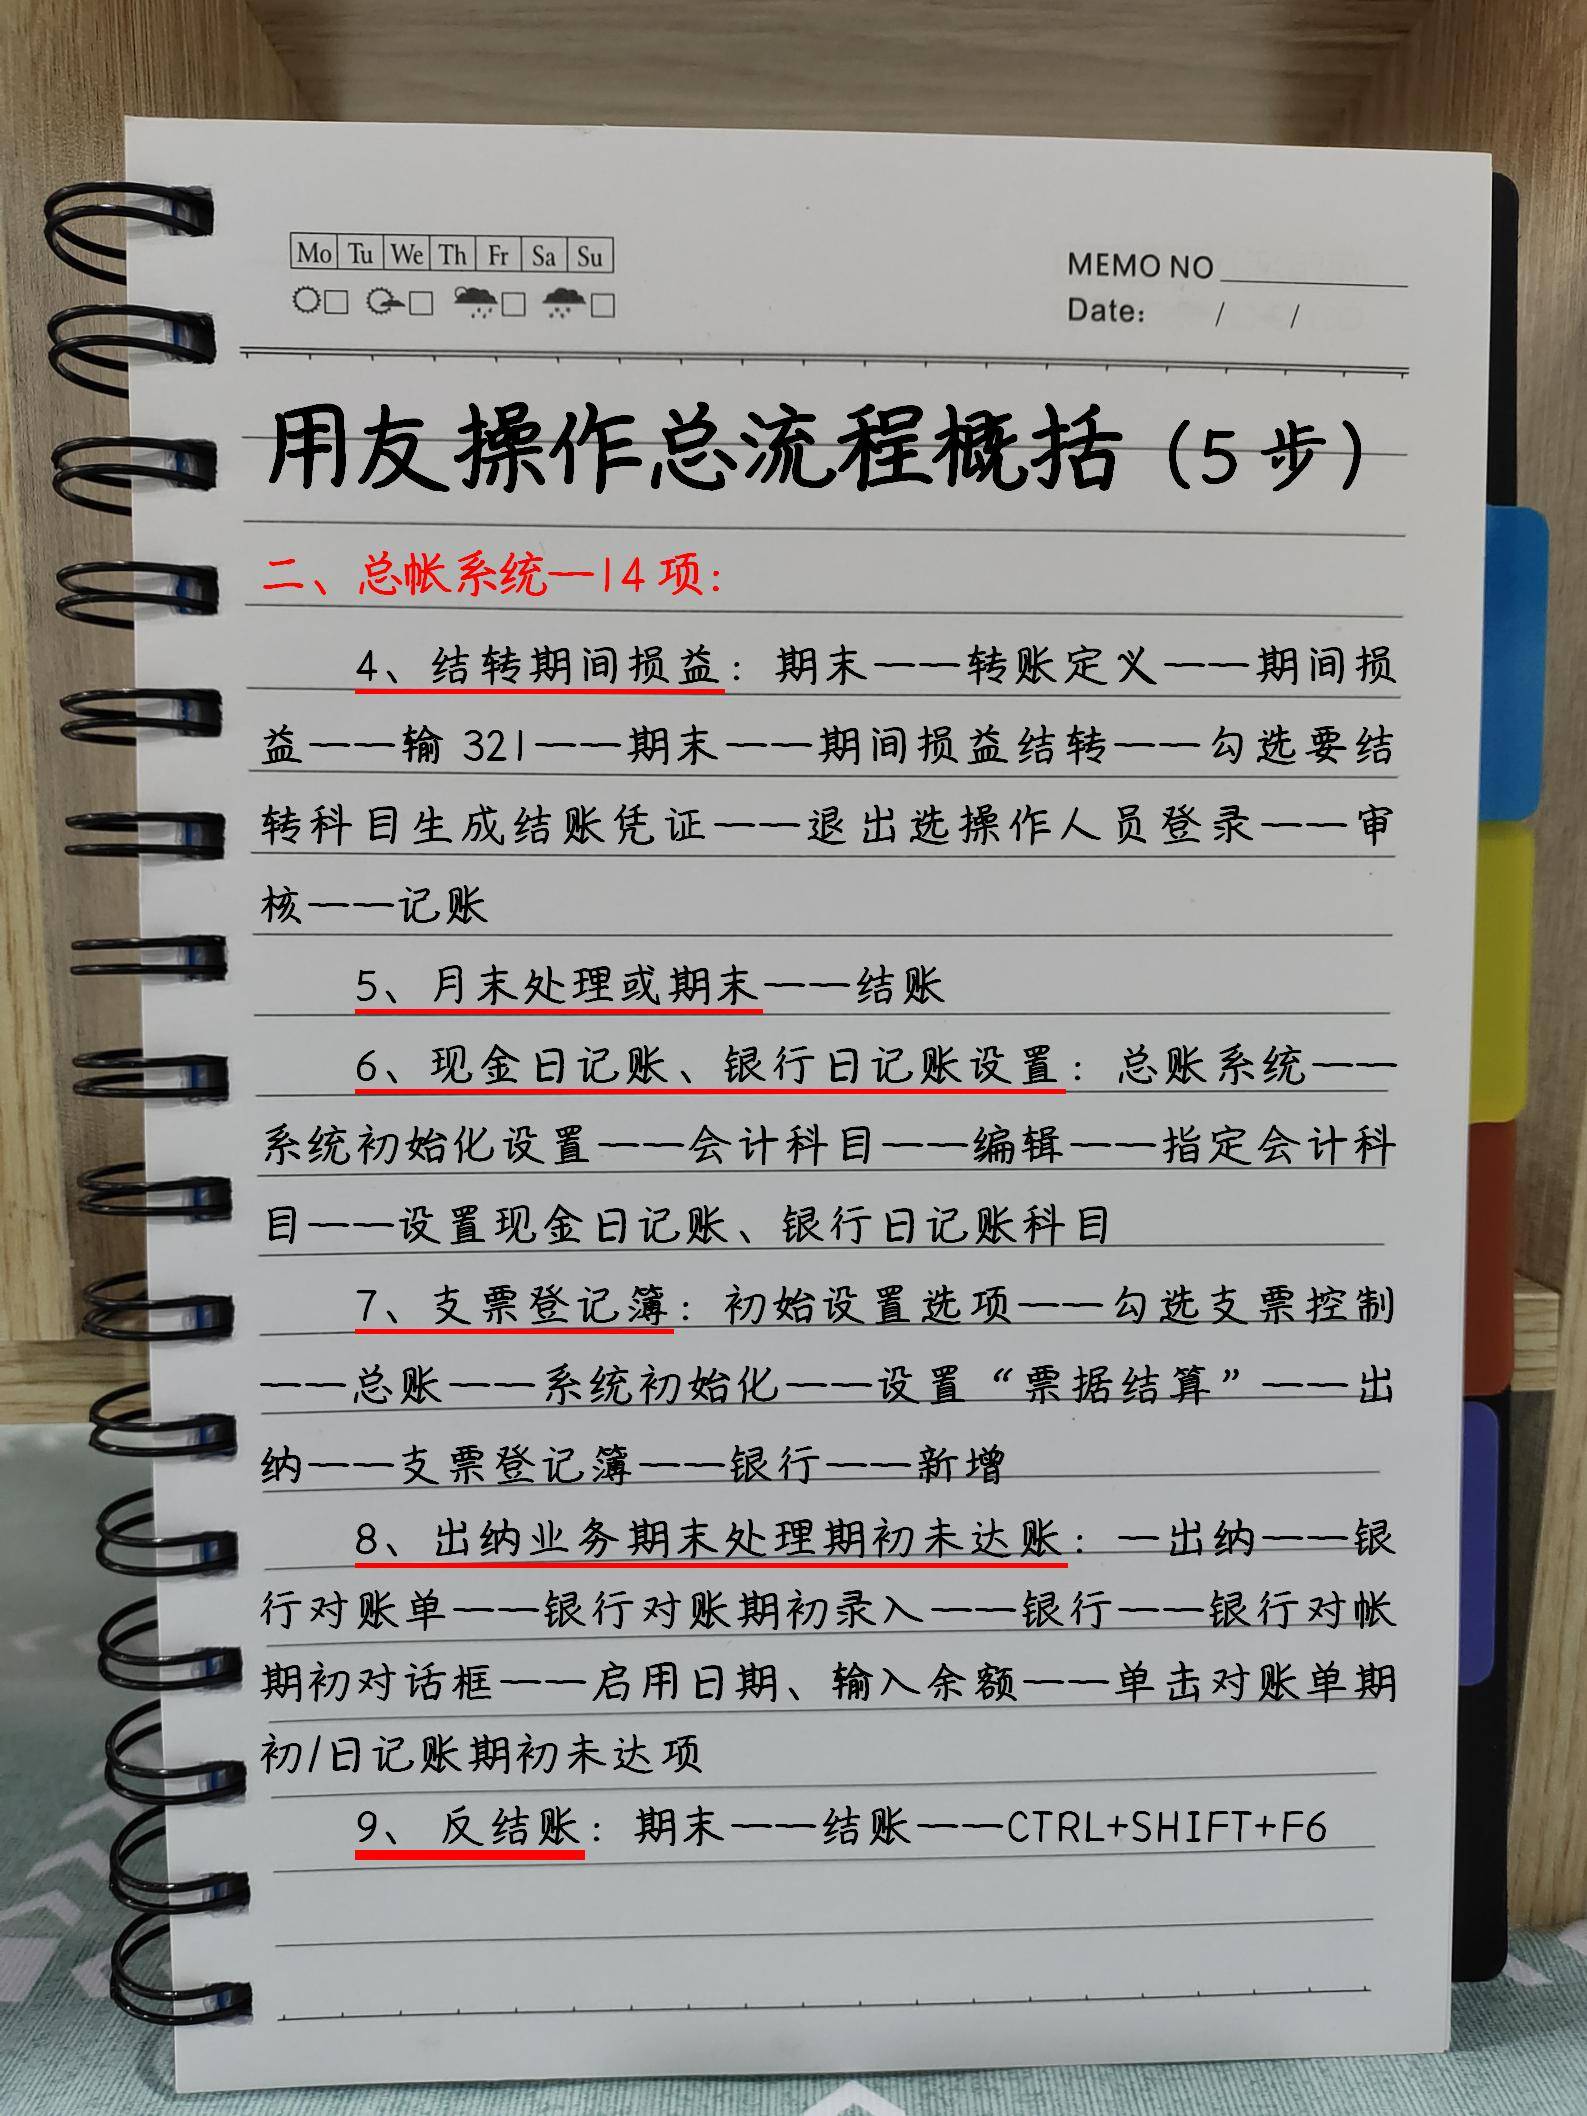 Mo Tu We Th Fr Sa Su
MEMO NO
Date: / /
用友操作总流程概括（5步）
二、总帐系统—14项：
4、结转期间损益：期末——转账定义——期间损
益——输321——期末——期间损益结转——勾选要结
转科目生成结账凭证——退出选操作人员登录——审
核——记账
5、月末处理或期末——结账
6、现金日记账、银行日记账设置：总账系统——
系统初始化设置——会计科目——编辑——指定会计科
目——设置现金日记账、银行日记账科目
7、支票登记簿：初始设置选项——勾选支票控制
——总账——系统初始化——设置“票据结算”——出
纳——支票登记簿——银行——新增
8、出纳业务期末处理期初未达账：—出纳——银
行对账单——银行对账期初录入——银行——银行对帐
期初对话框——启用日期、输入余额——单击对账单期
初/日记账期初未达项
9、 反结账：期末——结账——CTRL+SHIFT+F6